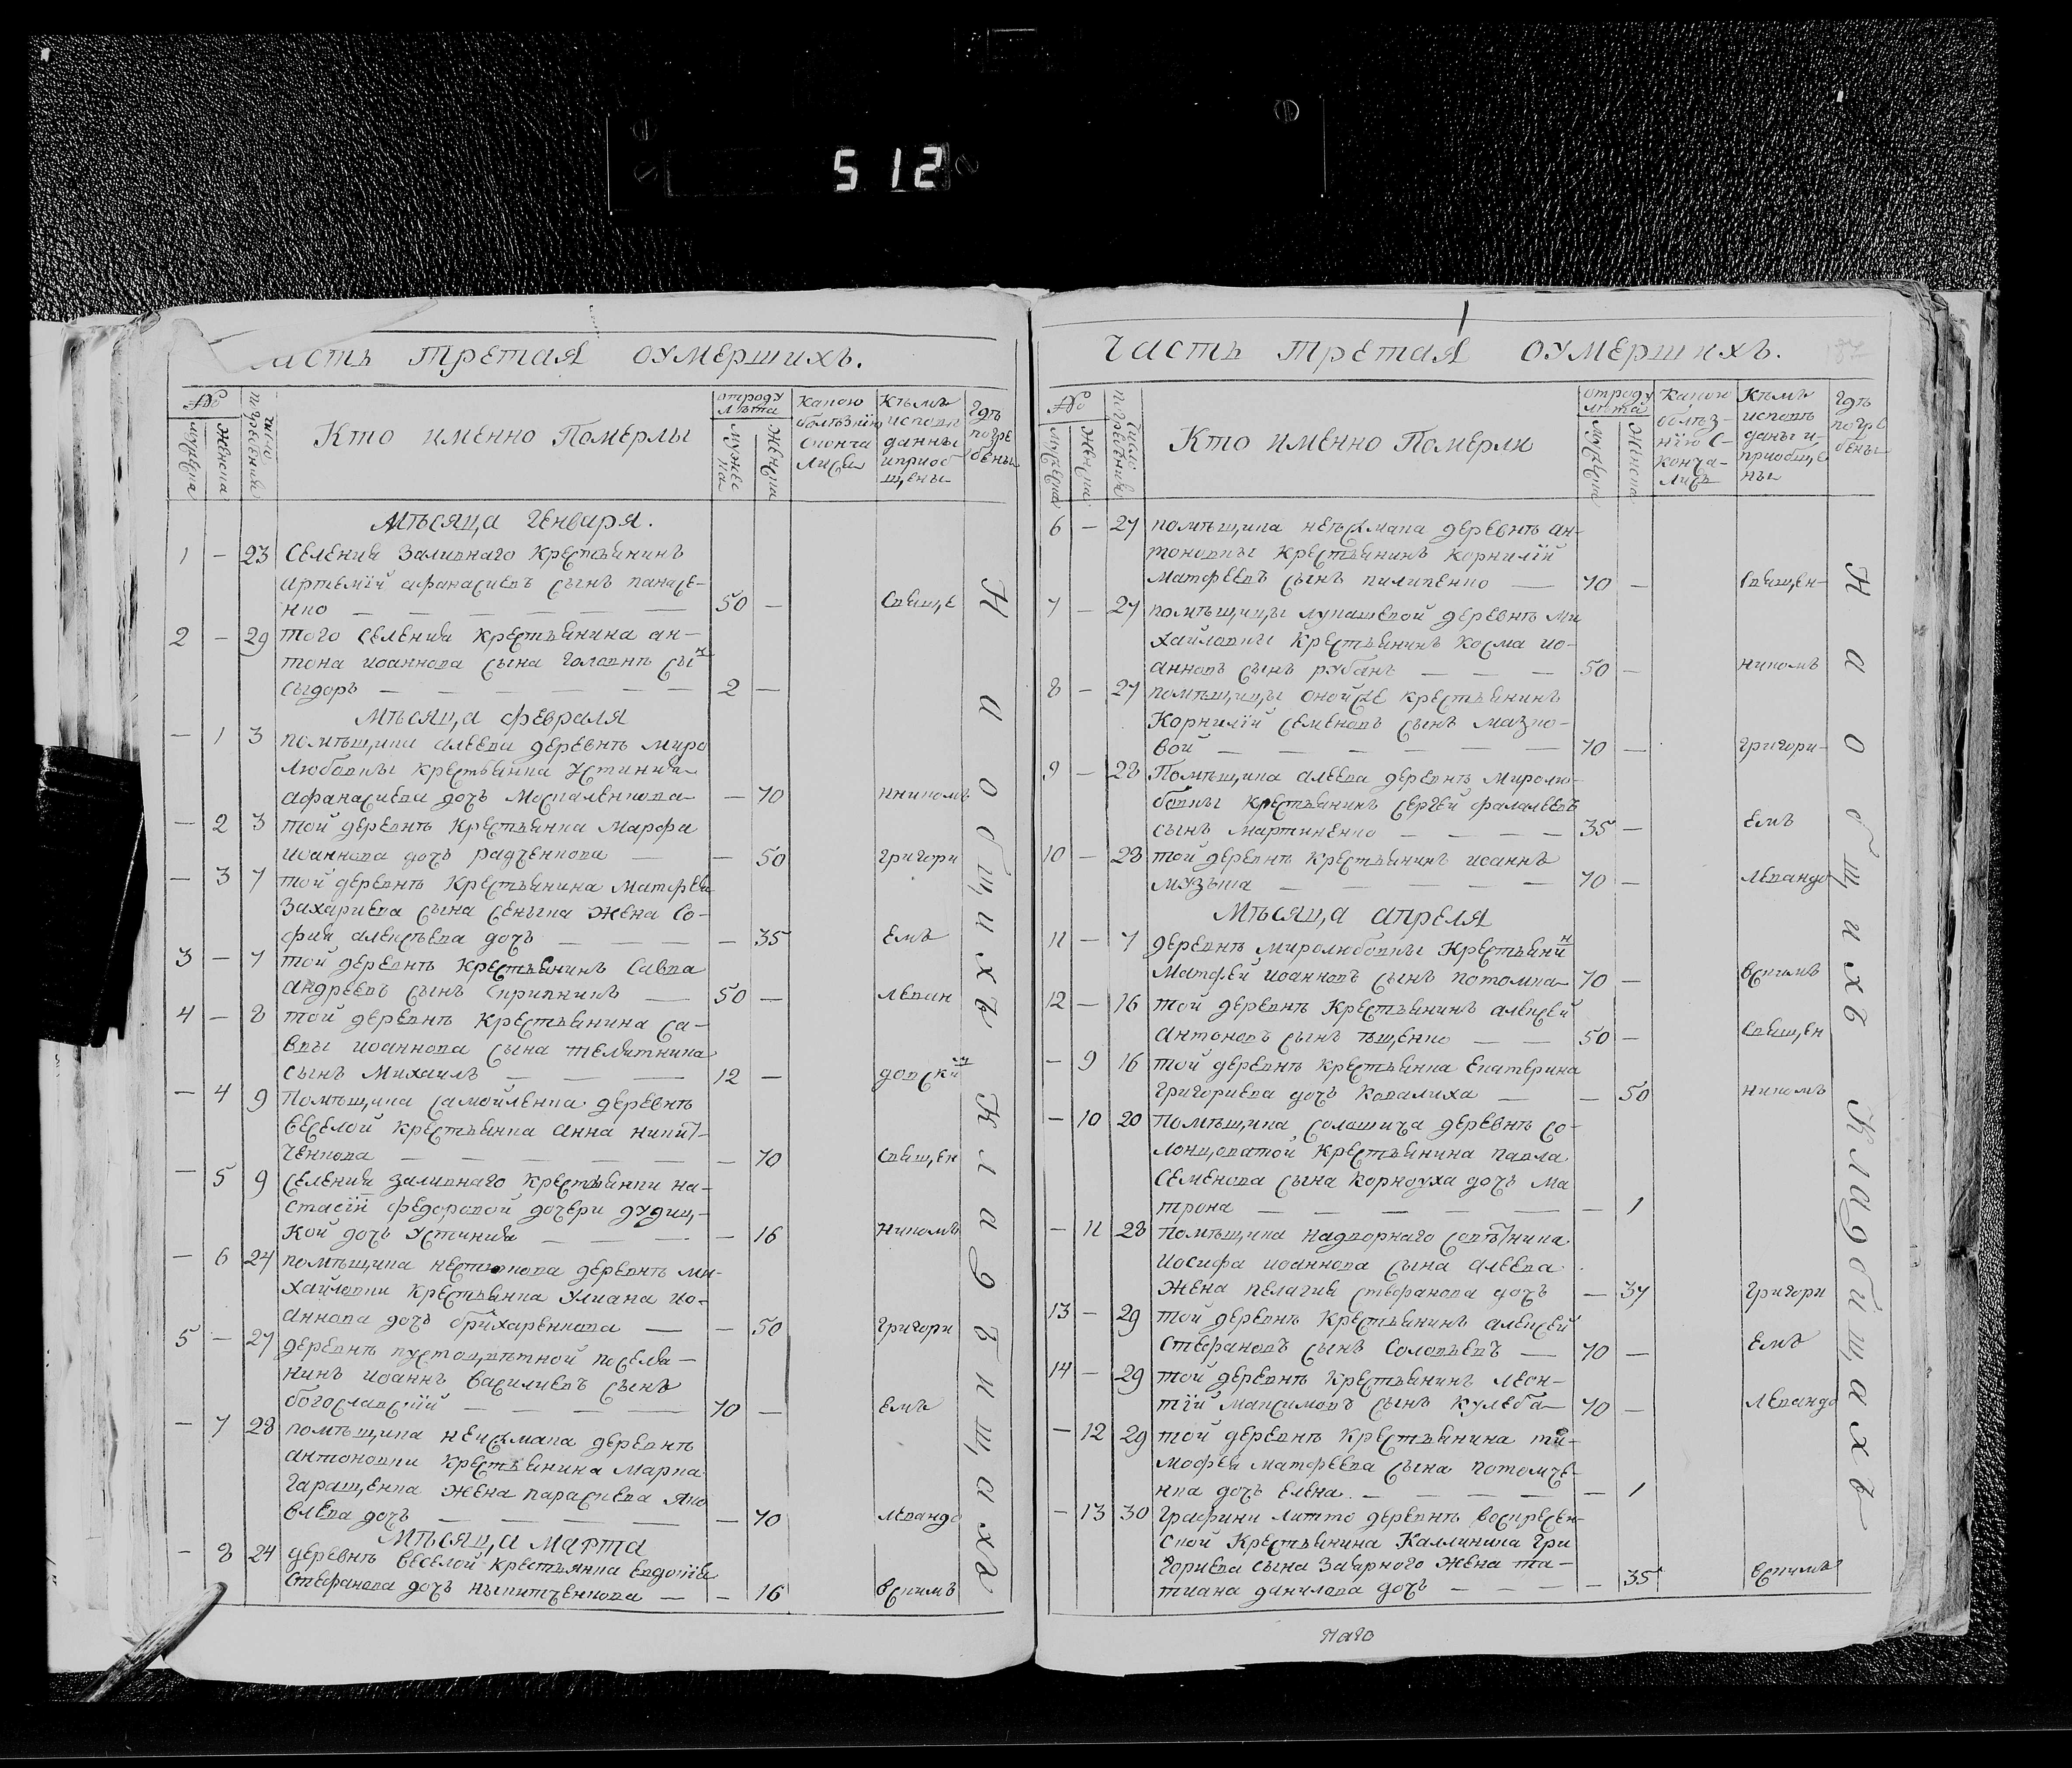 512
часть третая оумершихъ.
№
мужеска
женска
число погребения
Кто именно Померлы
отроду лѣта
мужеска
женска
какою болѣзнїю сконча лисѣ
Кѣмъ исповѣ данны и приоб щены
гдѣ погре бены
Мѣсяца Генваря.
1 — 23 Селения Заливнаго Крестьянинъ
Артемїй афанасиевъ сынъ панасе-
нко — 50 — Свяще
2 — 29 того селения крестьянина ан-
тона иоаннова сына головнѣ сынъ
сыдоръ — 2 —
Мѣсяца февраля
— 1 3 помѣщика алеева деревнѣ миро
любовкы крестьянка Устиния
афанасиева дочь москаленкова — 70 ннико­мъ
— 2 3 той деревнѣ Крестьянка Марфа
иоаннова дочь радченкова — — 50 григори
— 3 7 той деревнѣ Крестьянина Матфея
Захариева сына сенька жена со-
фия алексѣева дочь — — 35 емъ
3 — 7 той деревнѣ крестьянинъ Савва
андреевъ сынъ Скрипникъ — 50 — леван
4 — 8 той деревнѣ крестьянина са-
ввы иоаннова сына телятника
сынъ Михаилъ — 12 — довским
— 4 9 Помѣщика самойленка деревнѣ
веселой крестьянка анна никит-
ченкова — — 70 Священ
— 5 9 селения заливнаго крестьянки на-
стасїи федоровой дочери дудиц-
кой дочь Устиния — — 16 никомъ
— 6 24 помѣщика нестюкова деревнѣ ми-
хайловки крестьянка Улиана ио-
аннова дочь брихаренкова — — 50 григори
5 — 27 деревнѣ пустоцвѣтной поселя-
нинъ иоаннъ василиевъ сынъ
богославскїй — 70 — емъ
— 7 28 помѣщика деревнѣ
антоновки крестьянина Марка
гаращенка жена параскева яко
влева дочь — — 70 левандо
Мѣсяца Марта
— 8 24 деревнѣ веселой крестьянка Евдокїя
Стефанова дочь никитченкова — — 16 вскимъ
На общихъ Кладбищахъ
часть третая оумершихъ.
№
мужеска
женска
число погребения
Кто именно Померли
отроду лѣта
мужеска
женска
какою болѣз- нїю с- конча- лись
Кѣмъ исповѣ даны и приобще ны
гдѣ погре бены
6 — 27 помѣщика деревнѣ ан-
тоновкы крестьянинъ корнилїй
матфеевъ сынъ пилипенко — 70 — Священ-
7 — 27 помѣщицы лукашевой деревнѣ ми
хайловкы крестьянинъ косма ио-
анновъ сынъ рубанъ — 50 — никомъ
8 — 27 помѣщицы онойже крестьянинъ
Корнилїй семеновъ сынъ мазко-
вой — 70 — григори-
9 — 28 Помѣщика алеева деревнѣ миролю-
бовкы крестьянинъ сергей фалалеевъ
сынъ мартиненко — 35 — емъ
10 — 28 той деревнѣ крестьянинъ иоаннъ
музыка — 70 — левандо
Мѣсяца апреля
11 — 7 деревнѣ миролюбовкы Крестьянинъ
Матфей иоанновъ сынъ потомка 70 — вскимъ
12 — 16 той деревнѣ Крестьянинъ алексей
антоновъ сынъ ѣщенко — 50 — Священ
— 9 16 той деревнѣ крестьянка Екатерина
григориева дочь ковалиха — — 50 никомъ
— 10 20 помѣщика солошича деревнѣ со-
лонцоватой крестьянина павла
семенова сына корноуха дочь ма
трона — — 1
— 11 28 помѣщика надворнаго совѣтника
иосифа иоаннова сына алеева
жена пелагия стефанова дочь — 37 григори
13 — 29 той деревнѣ Крестьянинъ алексей
Стефановъ сынъ Соловьевъ — 70 — емъ
14 — 29 той деревнѣ крестьянинъ леон-
тїй максимовъ сынъ кулеба — 70 — левандо
— 12 29 той деревнѣ крестьянина ти-
мофея матфеева сына потомче-
нка дочь елена — — 1
— 13 30 графини литто деревнѣ воскресен-
ской крестьянина Каллиника Гри
гориева сына Заярного жена та-
тиана данилова дочь — — 35 вскимъ
На общихъ Кладбищахъ
наго